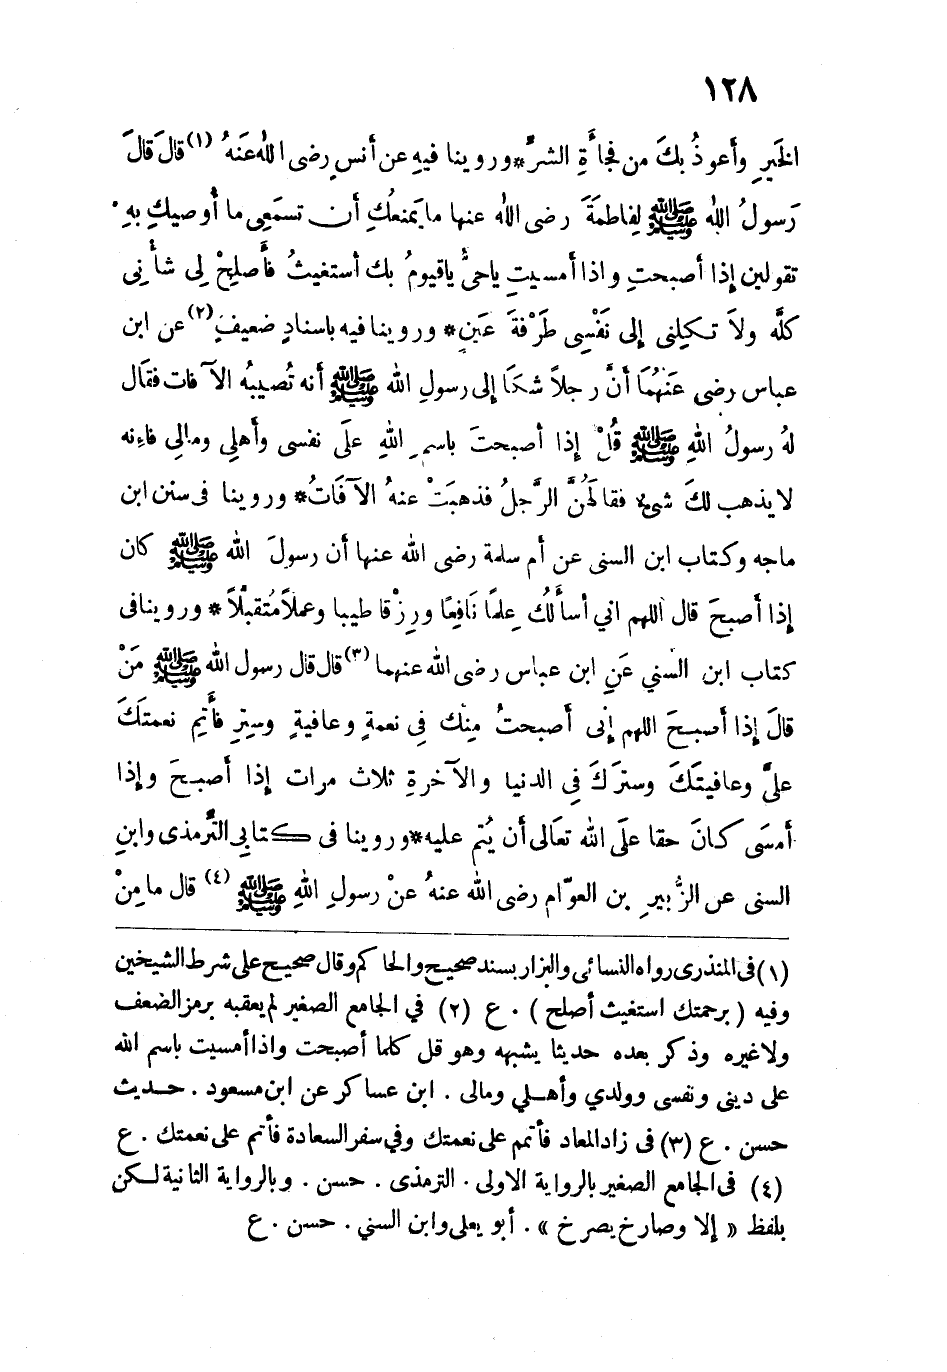 ١٢٨
الخَيرِ وأعوذُ بكَ من فجأَةِ الشرِّ * وروينا فيهِ عن أنسٍ رضى اللهُ عَنَهُ (١) قالَ قالَ
رَسولُ اللهِ ﷺ لِفاطمةَ رضى الله عنها ما يَمنعُكِ أن تسمَعِى ما أُوصيكِ بهِ .
تقولين إذا أصبحتِ واذا أمسيتِ ياحىُّ ياقيومُ بك أستغيثُ فأَصلِحْ لِى شأْنِى
كلَّه ولاَ تكلِنى إلى نَفْسِى طَرْفةَ عَينٍ * وروينا فيه باسنادٍ ضعيفٍ (٢) عن ابن
عباس رضى عَنْهُمَا أنَّ رجلاً شكَا إلى رسولِ الله ﷺ أنه تُصيبُه الآفات فقال
لهُ رسولُ اللهِ ﷺ قُلْ إذا أصبحتَ باسمِ اللهِ علَى نفسى وأهلِى ومالِى فاءنه
لايذهب لكَ شىء فقالَهُنَّ الرَّجلُ فذهبَتْ عنهُ الآفَاتُ * وروينا فى سنن ابن
ماجه وكتاب ابن السنى عن أم سلمة رضى الله عنها أن رسولَ الله ﷺ كان
إذا أصبحَ قال اللهم اني أسألُكَ عِلمًا نَافِعًا ورِزْقا طيبا وعملاً مُتقبَّلاً * وروينافى
كتاب ابن السني عَنِ ابن عباس رضى الله عنهما (٣) قال قال رسول الله ﷺ مَنْ
قالَ إذا أصبحَ اللهم إنى أصبحتُ مِنك فِى نعمةٍ وعافيةٍ وسِترٍ فأتِم نعمتَكَ
علىَّ وعافيتَكَ وسترَكَ فِى الدنيا والآخرةِ ثلاث مرات إذا أصبحَ وإذا
أمسَى كانَ حقا علَى الله تعَالى أن يُتم عليه * وروينا فى كتابىِ التَّرمذى وابنِ
السنى عن الزُّبيرِ بن العوّام رضى الله عنهُ عنْ رسولِ اللهِ ﷺ (٤) قال مامِنْ
(١) فى المنذرى رواه النسائى والبزار بسند صحيح والحاكم وقال صحيح على شرط الشيخين
وفيه ( برحمتك استغيث أصلح ) . ع (٢) في الجامع الصغير لم يعقبه برمز الضعف
ولاغيره وذكر بعده حديثا يشبهه وهو قل كلما أصبحت واذا أمسيت باسم الله
على دينى ونفسى وولدي وأهلي ومالى . ابن عساكر عن ابن مسعود . حديث
حسن . ع (٣) فى زاد المعاد فأتمم على نعمتك وفي سفر السعادة فأتم على نعمتك . ع
(٤) فى الجامع الصغير بالرواية الاولى . الترمذى . حسن . وبالرواية الثانية لكن
بلفظ « إلا وصارخ يصرخ » . أبو يعلى وابن السني . حسن . ع